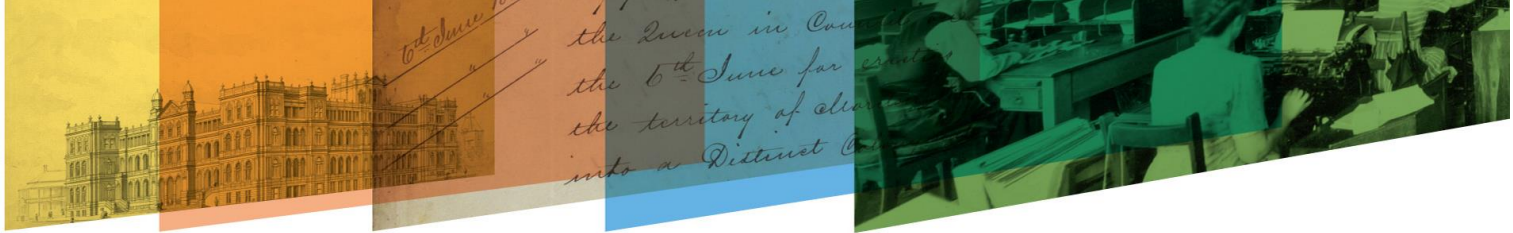 6th June
" "
" "
the Queen in Coun
the 6th June for
the territory of
into a Distinct